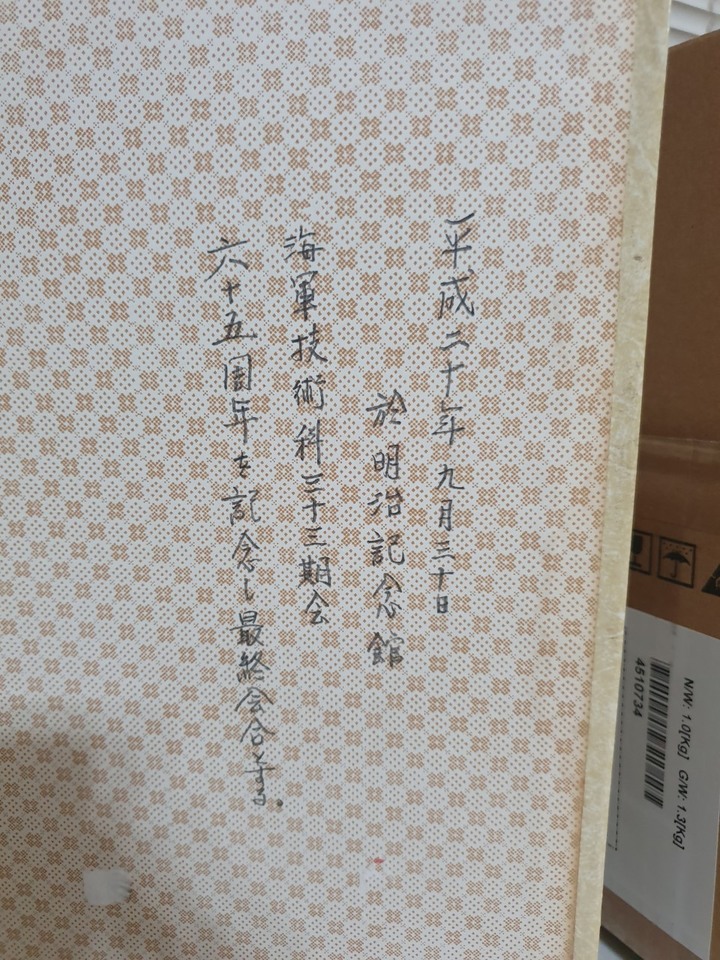 平成二十年九月三十日
於明治記念館
海軍技術科三十三期会
六十五周年を記念し最終会合
N/W: 1.0[Kg] G/W: 1.3[Kg]
4510734